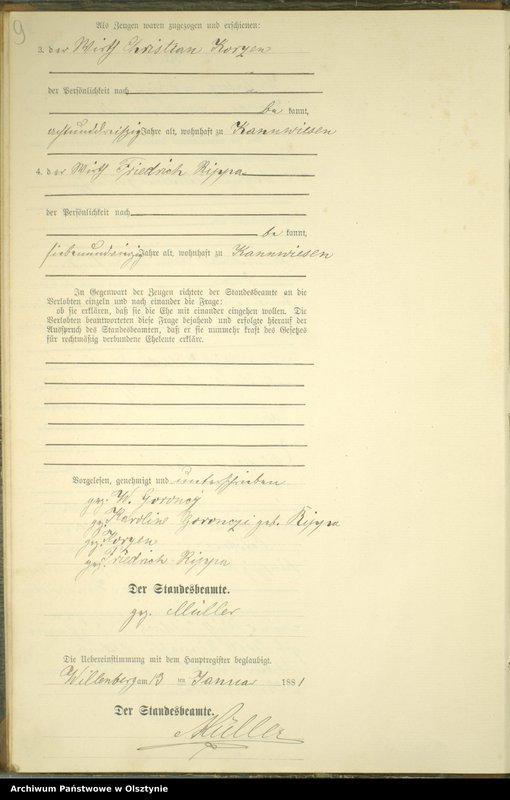 9
Als Zeugen waren zugezogen und erschienen:
3. der Wirth Christian Korzen
der Persönlichkeit nach
be kannt,
achtunddreißig Jahre alt, wohnhaft zu Kannwiesen
4. der Wirth Friedrich Rippa
der Persönlichkeit nach
be kannt,
Jahre alt, wohnhaft zu Kannwiesen
In Gegenwart der Zeugen richtete der Standesbeamte an die
Verlobten einzeln und nach einander die Frage:
ob sie erklären, daß sie die Ehe mit einander eingehen wollen. Die
Verlobten beantworteten diese Frage bejahend und erfolgte hierauf der
Ausspruch des Standesbeamten, daß er sie nunmehr kraft des Gesetzes
für rechtmäßig verbundene Eheleute erkläre.
Vorgelesen, genehmigt und unterschrieben
gez. W. Goronzy
gez. Karoline Goronczi geb. Rippa
gez. Korzen
gez. Friedrich Rippa
Der Standesbeamte.
gez. Müller
Die Uebereinstimmung mit dem Hauptregister beglaubigt.
Willenberg am 13 ten Januar 1881
Der Standesbeamte.
Müller
Archiwum Państwowe w Olsztynie